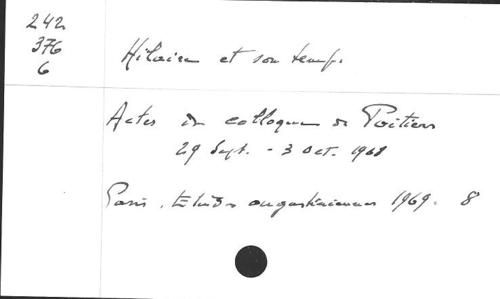 242
376
6
Hilaire et son temps
Actes du colloque de Poitiers
29 Sept. - 3 Oct. 1968
Paris, Etudes augustiniennes 1969. 8